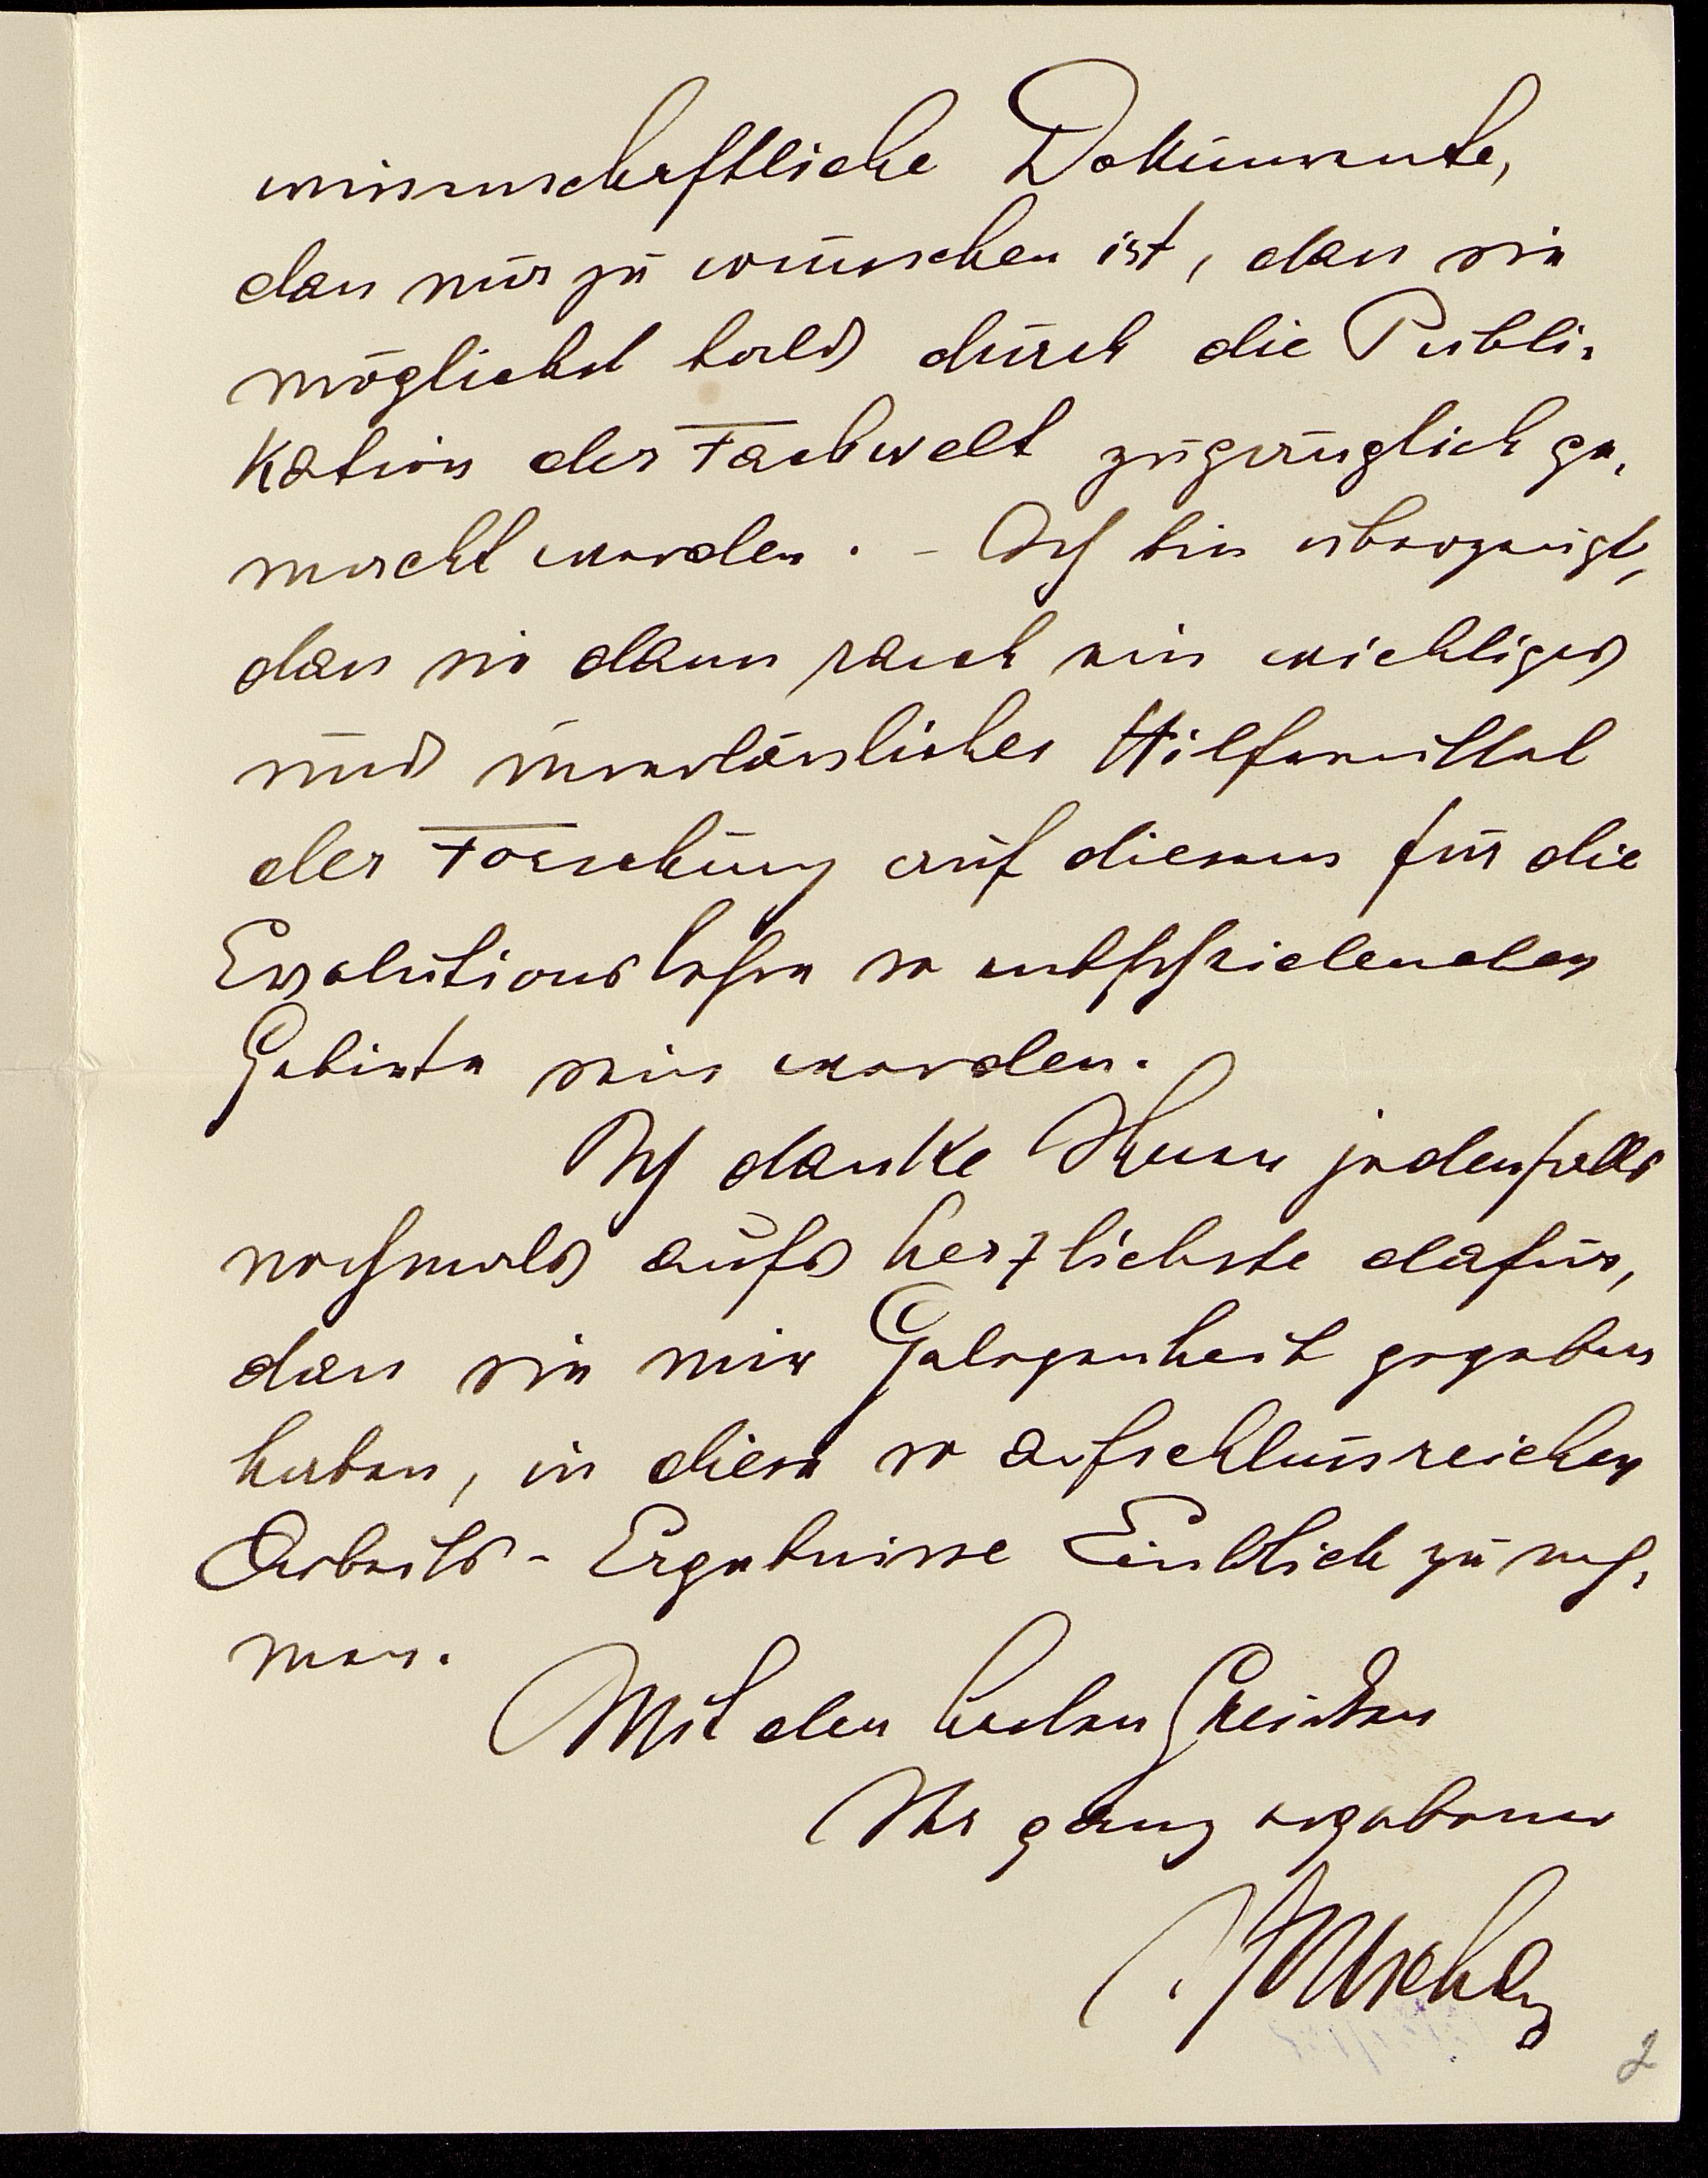 wissenschaftliche Dokumente,
dass nur zu wünschen ist, dass sie
möglichst bald durch die Publi-
kation der Fachwelt zugänglich ge-
macht werden. – Ich bin überzeugt,
dass sie dann rasch ein wichtiges
und unerlässliches Hilfsmittel
der Forschung auf diesem für die
Evolutionslehre so entscheidenden
Gebiete sein werden.
Ich danke Ihnen jedenfalls
nochmals aufs herzlichste dafür,
dass sie mir Gelegenheit gegeben
haben, in diese so aufschlussreichen
Arbeits-Ergebnisse Einblick zu neh-
men.
Mit den besten Grüssen
Ihr ganz ergebener
2